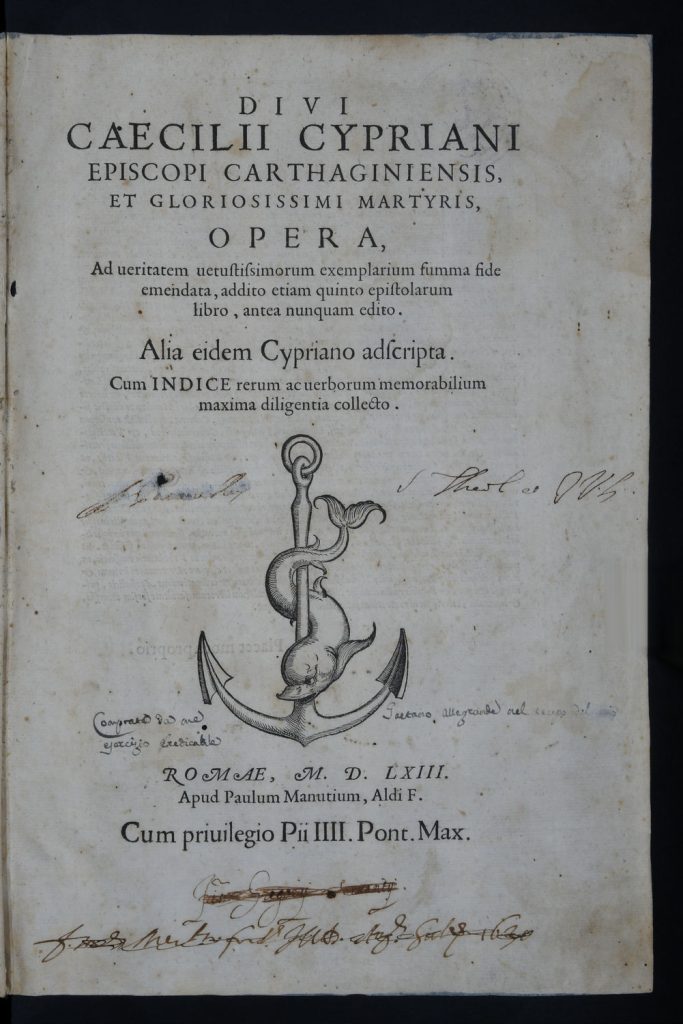 DIVI
CAECILII CYPRIANI
EPISCOPI CARTHAGINIENSIS,
ET GLORIOSISSIMI MARTYRIS,
OPERA,
Ad ueritatem uetustiſsimorum exemplarium ſumma fide
emendata, addito etiam quinto epiſtolarum
libro, antea nunquam edito.
Alia eidem Cypriano adſcripta.
Cum INDICE rerum ac uerborum memorabilium
maxima diligentia collecto.
Comprato da me Gaetano nel
ROMAE, M. D. LXIII.
Apud Paulum Manutium, Aldi F.
Cum priuilegio Pii IIII. Pont. Max.